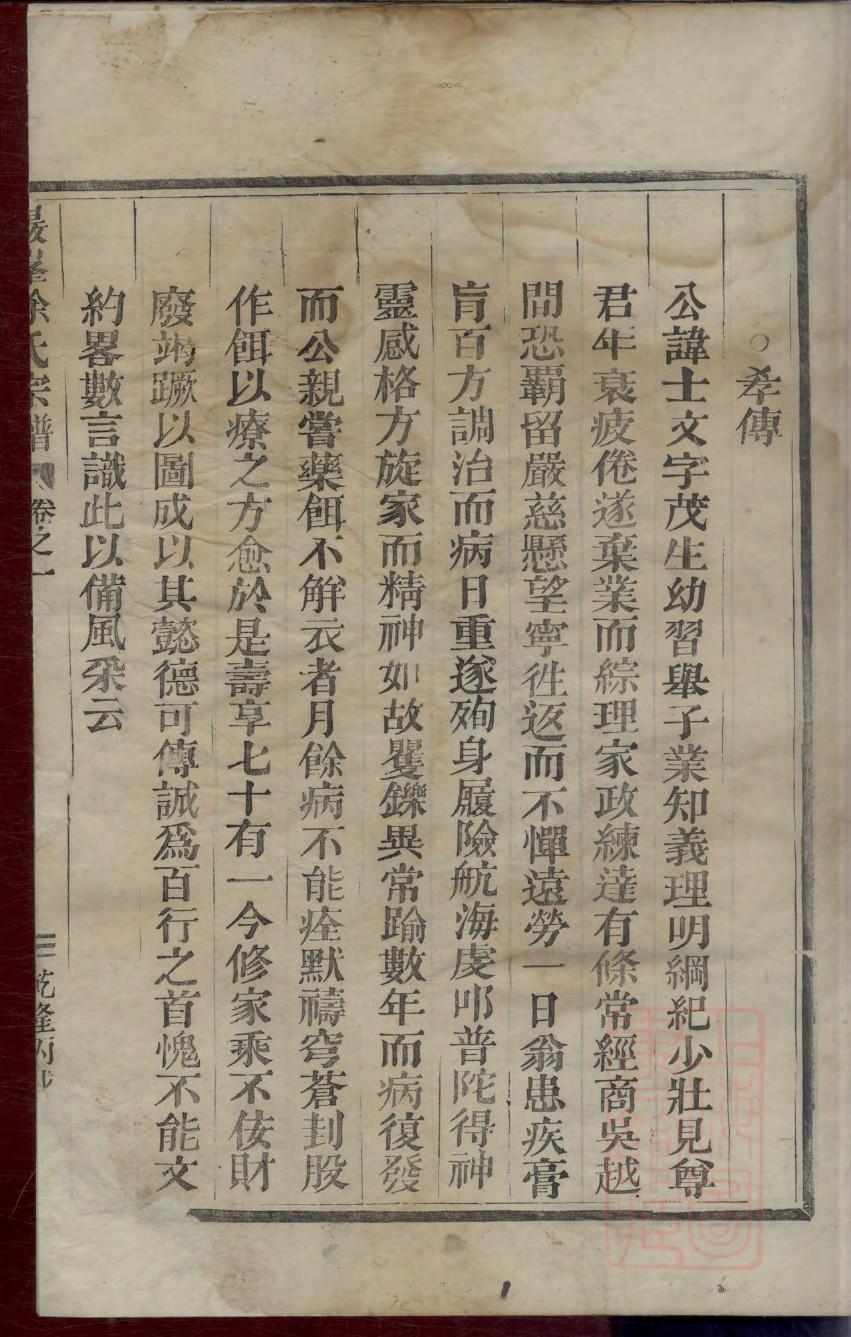 ○孝傳
公諱士文字茂生幼習舉子業知義理明綱紀少壯見尊
君年衰疲倦遂棄業而綜理家政練達有條常經商吳越
間恐覊留嚴慈懸望寧徃返而不憚遠勞一日翁患疾膏
肓百方調治而病日重遂殉身履險航海虔叩普陀得神
靈感格方旋家而精神如故矍鑠異常踰數年而病復發
而公親嘗藥餌不解衣者月餘病不能痊默禱穹蒼刲股
作餌以療之方愈於是壽享七十有一今修家乘不侫財
廢竭蹶以圖成以其懿德可傳誠爲百行之首愧不能文
約畧數言識此以備風采云
徐氏宗譜 卷之一 二 乾隆丙戌